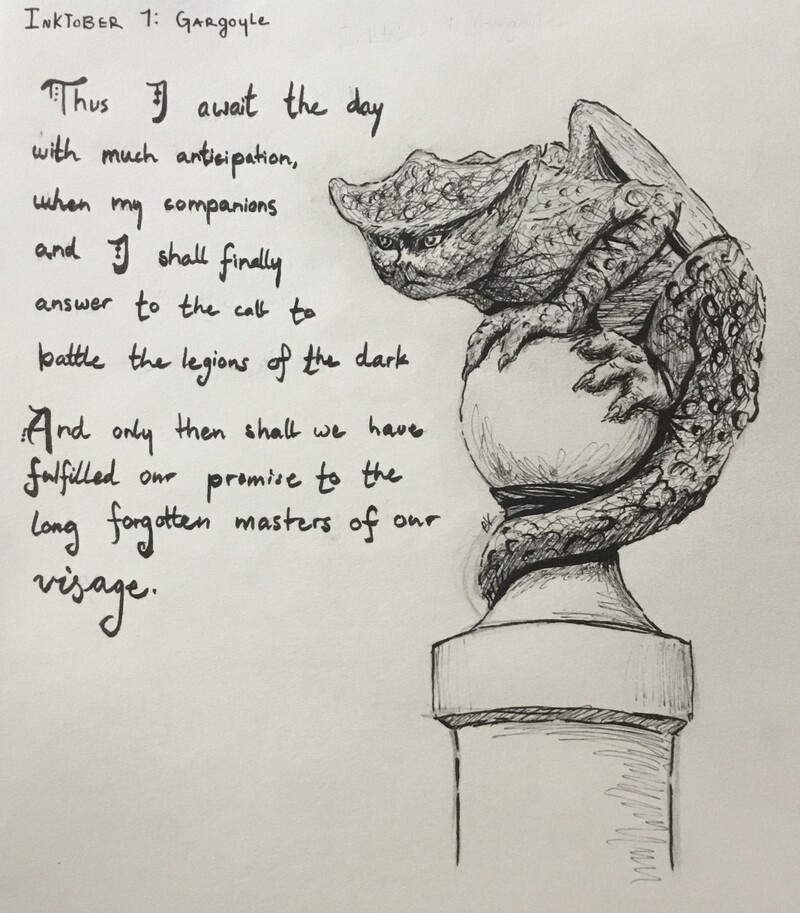 Inktober 1: Gargoyle
Thus I await the day
with much anticipation,
when my companions
and I shall finally
answer to the call to
battle the legions of the dark
And only then shall we have
fulfilled our promise to the
long forgotten masters of our
visage.